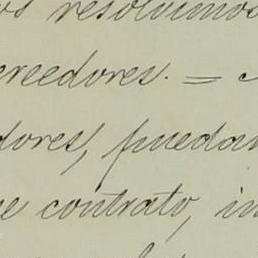 os resolvimos
creedores. =
dores, puedan
ue contrato, in